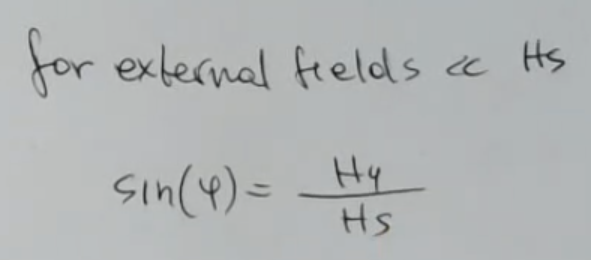 for external fields << Hs
sin(φ) = Hy / Hs